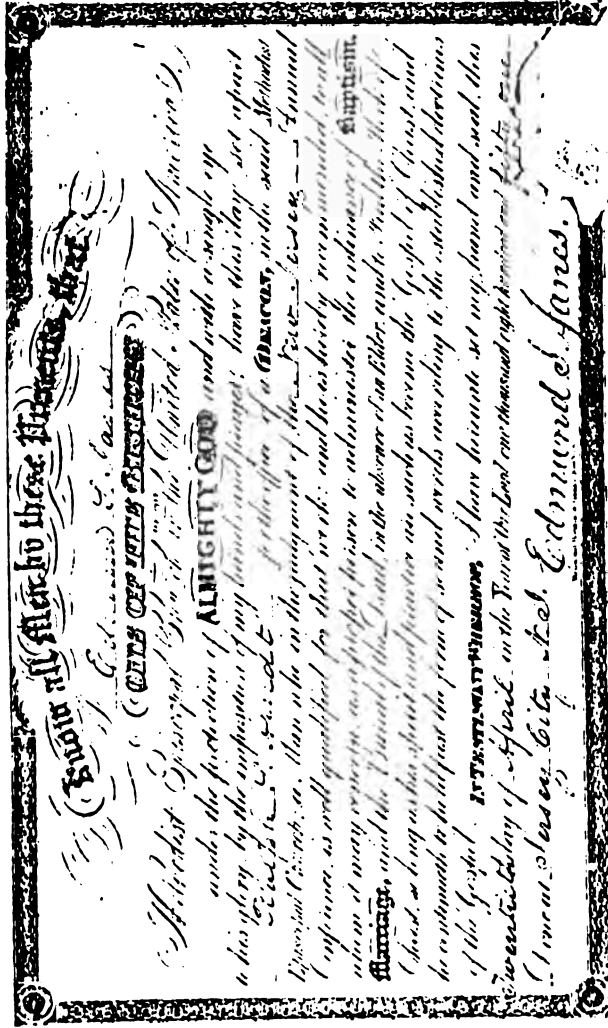 Know all Men by these Presents, that
I Edmund S. Janes
ONE OF THE BISHOPS
Methodist Episcopal Church in the United States of America,
under the protection of ALMIGHTY GOD and with a single eye
to his glory, by the imposition of my hands and prayer, have this day set apart
for the office of a DEACON, in the said Methodist
Episcopal Church, a man who in the judgment of the New Jersey Annual
Conference, is well qualified for that work: and he is hereby recommended, to all
whom it may concern, as a proper person to administer the ordinance of Baptism,
Marriage, and the Burial of the Dead, in the absence of an Elder, and to Feed the flock of
Christ, so long as his spirit and practice are such as become the Gospel of Christ, and
he continueth to hold fast the form of sound words according to the established doctrines
of the Gospel. IN TESTIMONY WHEREOF, I have hereunto set my hand and seal this
day of April in the Year of our Lord one thousand eight hundred and fifty
Done at Jersey City N.J. Edmund S. Janes.